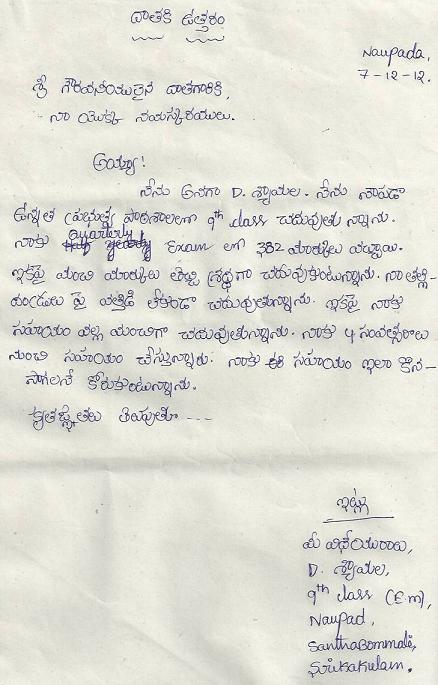 దాతకి ఉత్తరం
Naupada,
7-12-12.
శ్రీ గౌరవనీయులైన దాతగారికి,
నా యొక్క నమస్కారములు.
అయ్యా!
నేను అనగా D. శ్యామల. నేను నౌపడా
ఉన్నత ప్రభుత్వ పాఠశాలలో 9th class చదువుతున్నాను.
నాకు Quarterly Exam లో 382 మార్కులు వచ్చాయి.
ఇకపై మంచి మార్కులు తెచ్చి శ్రద్ధగా చదువుకుంటున్నాను. నా తల్లి-
దండ్రులు పై ఒత్తిడి లేకుండా చదువుతున్నాను. ఇకపై నాకు
సహాయం వల్ల మంచిగా చదువుతున్నాను. నాకు 4 సంవత్సరాలు
నుంచి సహాయం చేస్తున్నారు. నాకు ఈ సహాయం ఇలా కొన-
సాగాలని కోరుకుంటున్నాను.
కృతజ్ఞతలు తెలుపుతూ ---
ఇట్లు
మీ విధేయురాలు,
D. శ్యామల,
9th class (E.m),
Naupad,
SanthaBommali,
Srikakulam.